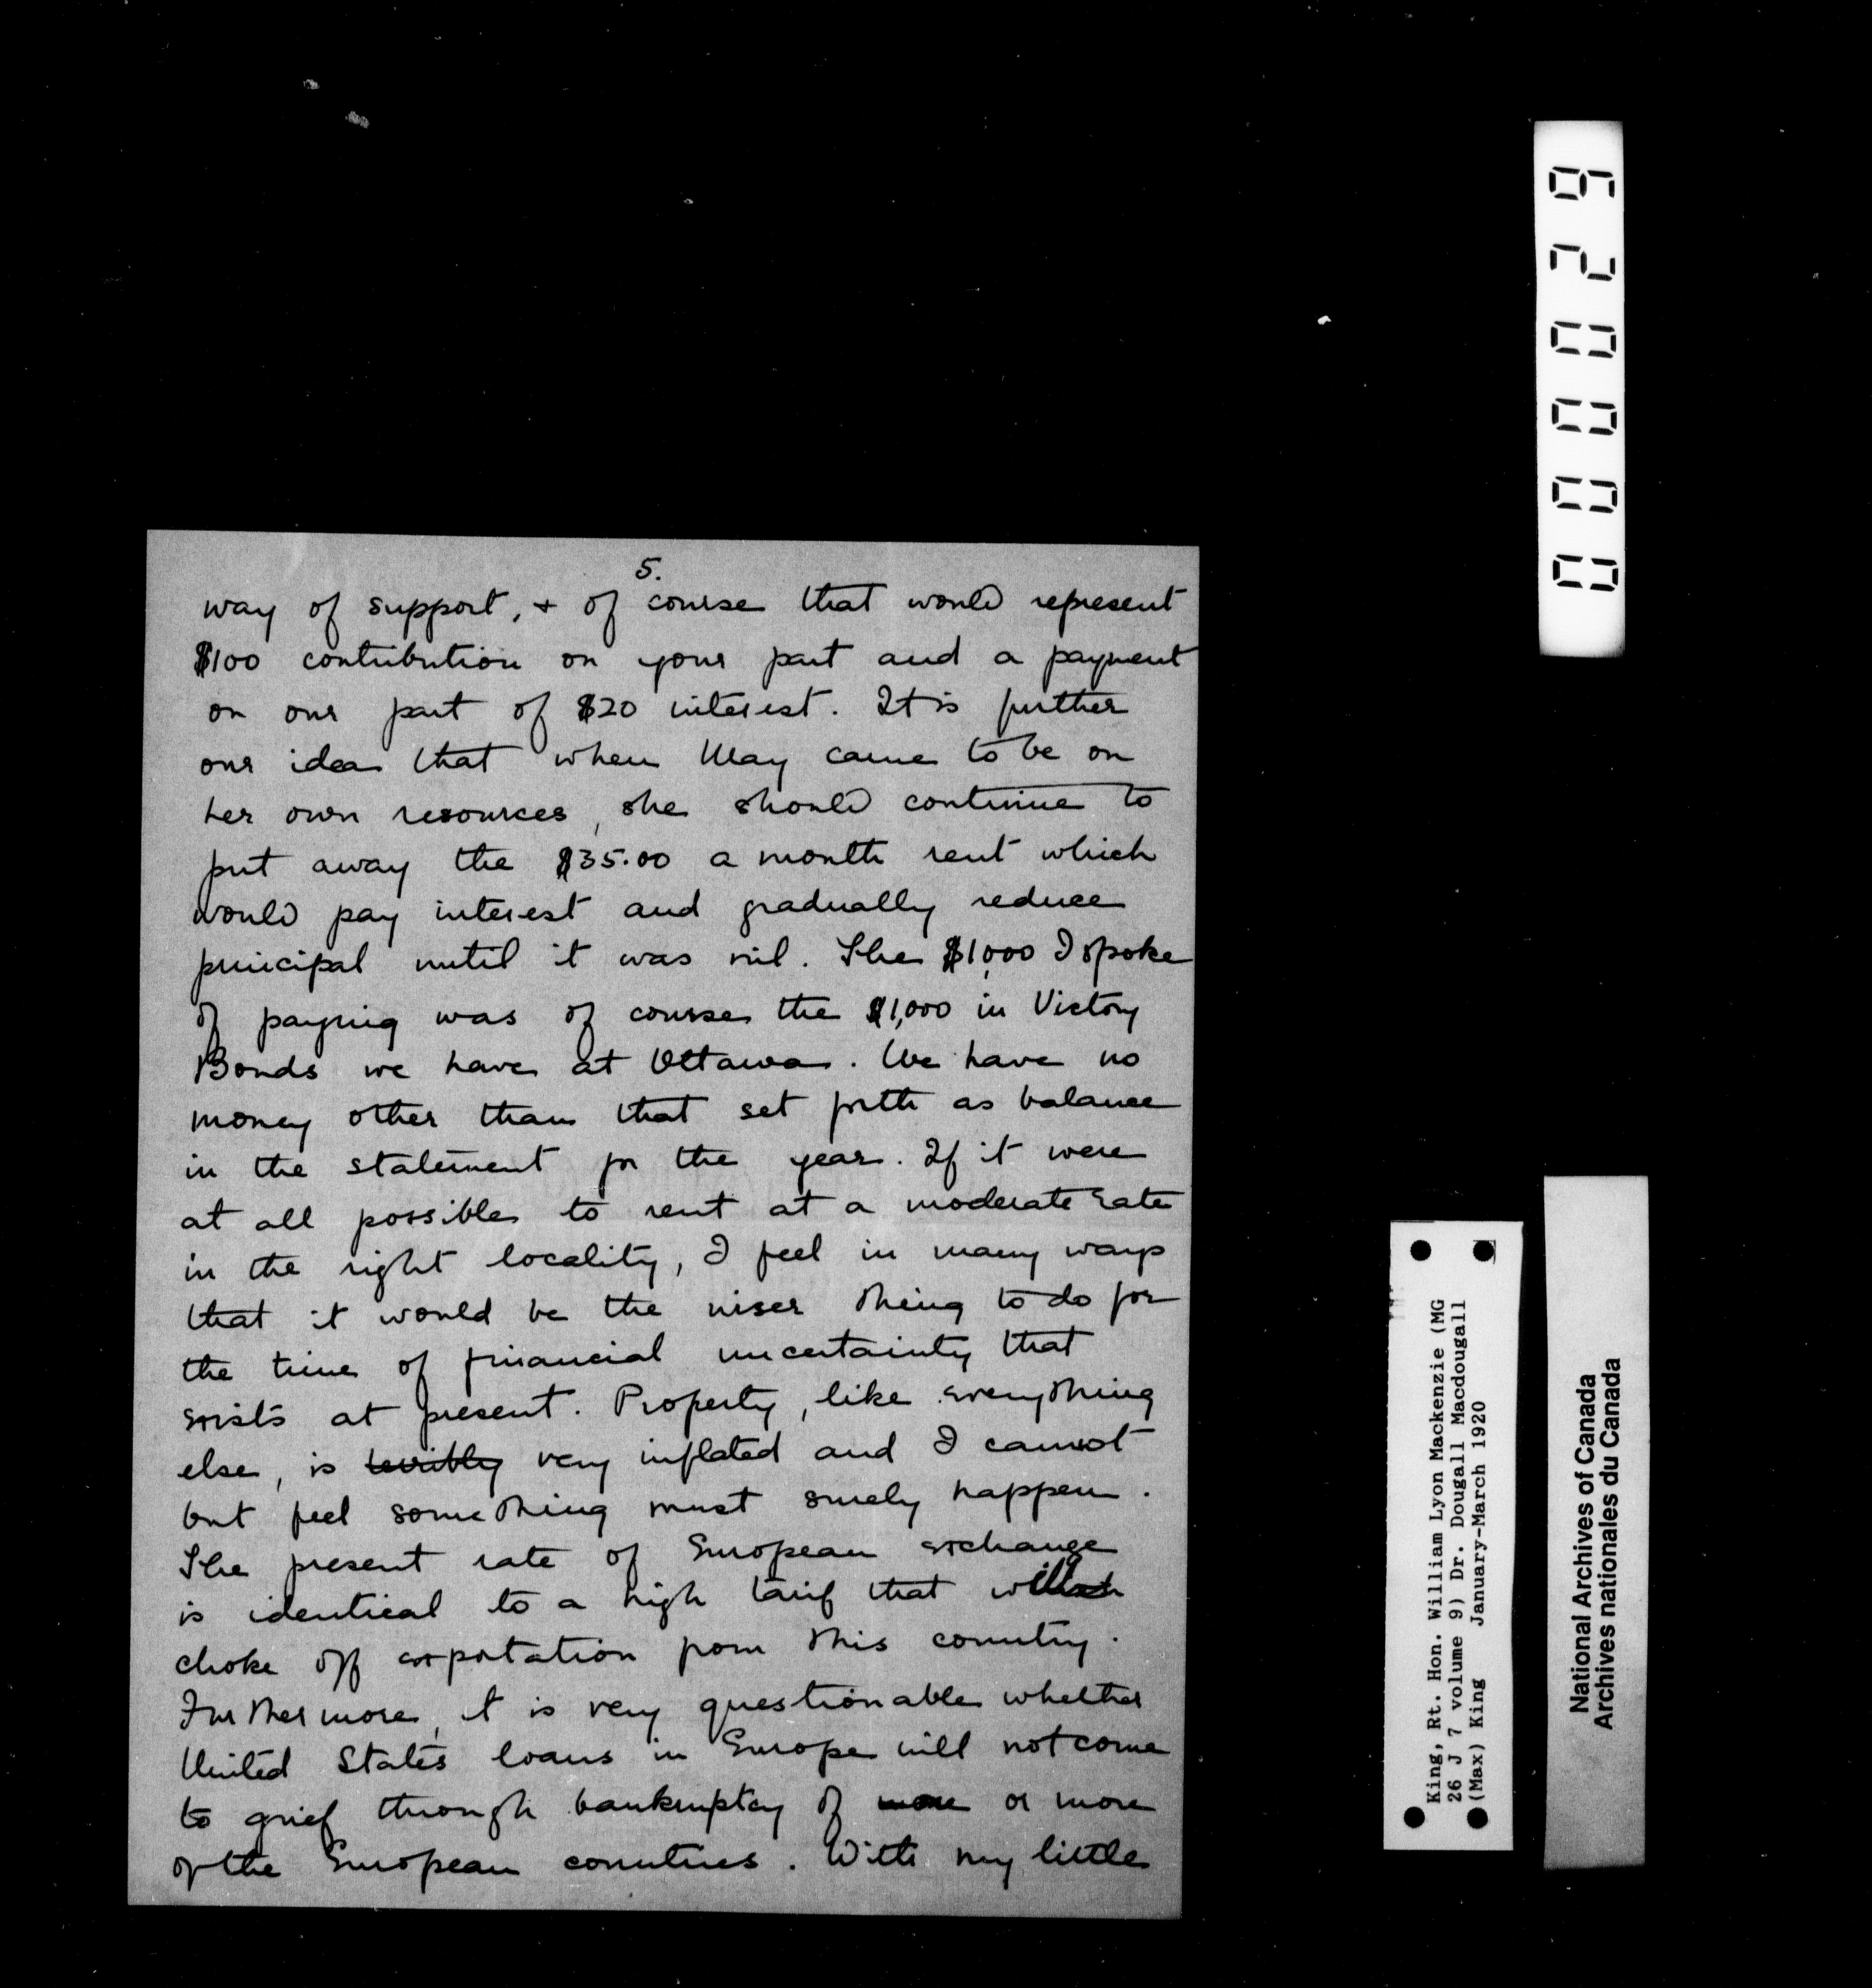 5.
way of support, + of course that would represent
$100 contribution on your part and a payment
on our part of $20 interest. It is further
our idea that when May came to be on
her own resources, she should continue to
put away the $35.00 a month rent which
would pay interest and gradually reduce
principal until it was nil. The $1,000 I spoke
of paying was of course the $1,000 in Victory
Bonds we have at Ottawa. We have no
money other than that set forth as balance
in the statement for the year. If it were
at all possible to rent at a moderate rate
in the right locality, I feel in many ways
that it would be the wiser thing to do for
the time of financial uncertainty that
exists at present. Property, like everything
else, is terribly very inflated and I cannot
but feel something must surely happen.
The present rate of European exchange
is identical to a high tarif that will
choke off exportation from this country.
Furthermore, it is very questionable whether
United States loans in Europe will not come
to grief through bankruptcy of or more
of the European countries. With my little
000029
King, Rt. Hon. William Lyon Mackenzie (MG
26 J 7 volume 9) Dr. Dougall Macdougall
(Max) King January-March 1920
National Archives of Canada
Archives nationales du Canada